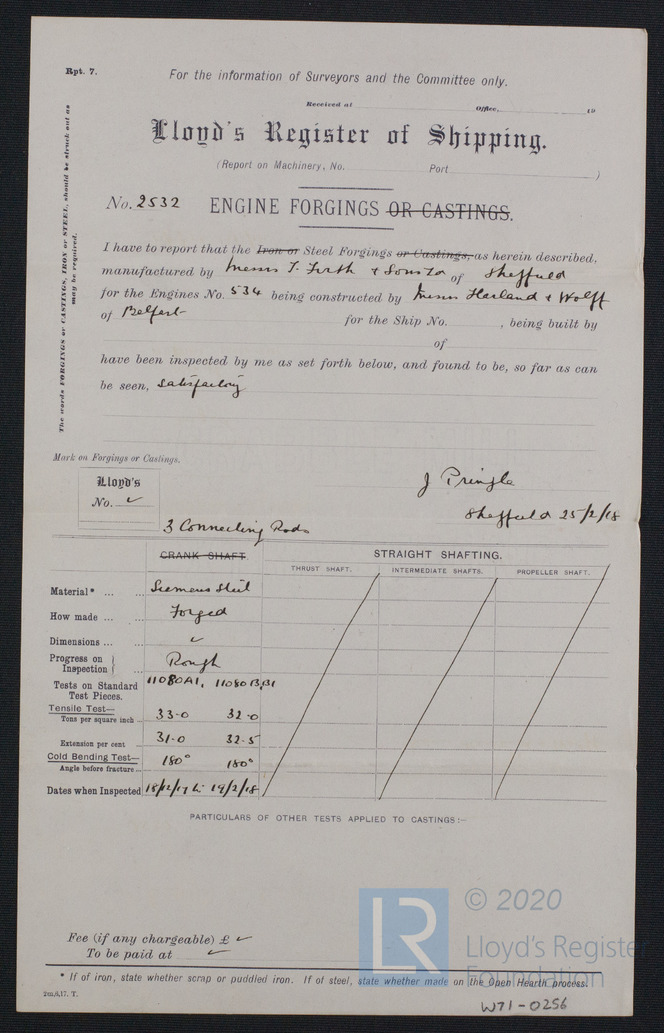 Rpt. 7.
For the information of Surveyors and the Committee only.
Received at Office, 19
Lloyd's Register of Shipping.
(Report on Machinery, No. Port )
No. 2532 ENGINE FORGINGS OR CASTINGS.
The words FORGINGS or CASTINGS, IRON or STEEL, should be struck out as
may be required.
I have to report that the Iron or Steel Forgings or Castings, as herein described,
manufactured by Messrs T. Firth & Sons Ld of Sheffield
for the Engines No. 534 being constructed by Messrs Harland & Wolff
of Belfast for the Ship No. , being built by
of
have been inspected by me as set forth below, and found to be, so far as can
be seen, satisfactory
Mark on Forgings or Castings.
Lloyd's
No. ✓
J Pringle
Sheffield 25/2/18
3 Connecting Rods
CRANK SHAFT. STRAIGHT SHAFTING.
THRUST SHAFT. INTERMEDIATE SHAFTS. PROPELLER SHAFT.
Material* ... ... Siemens Steel
How made ... ... Forged
Dimensions ... ... ✓
Progress on Inspection } ... Rough
Tests on Standard Test Pieces. 11080A1, 11080B,B1
Tensile Test—
Tons per square inch ... 33-0 32-0
Extension per cent 31-0 32-5
Cold Bending Test—
Angle before fracture ... 180° 180°
Dates when Inspected 18/12/17 to 19/2/18
PARTICULARS OF OTHER TESTS APPLIED TO CASTINGS:—
Fee (if any chargeable) £ ✓
To be paid at ✓
* If of iron, state whether scrap or puddled iron. If of steel, state whether made on the Open Hearth process.
2m,6,17. T.
LR
© 2020
Lloyd's Register
Foundation
W71-0256